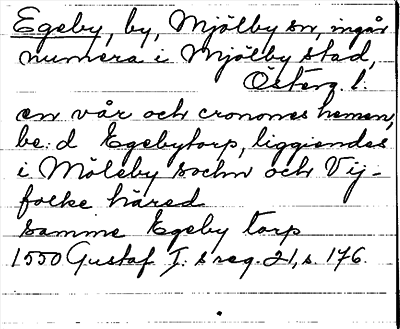 Egeby, by, Mjölby sn, ingår
numera i Mjölby stad,
Österg. l.
en vår och cronones hemen,
be:d Egebytorp, liggiendes
i Möleby sochn och Vij-
folke häred
samme Egeby torp
1550 Gustaf I:s reg. 21, s. 176.